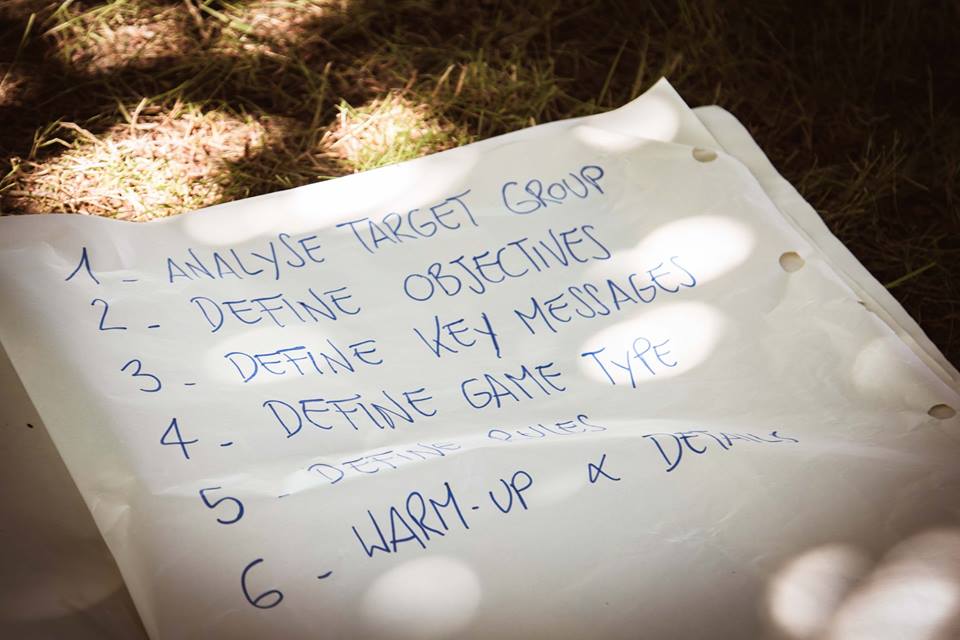 1 - ANALYSE TARGET GROUP
2 - DEFINE OBJECTIVES
3 - DEFINE KEY MESSAGES
4 - DEFINE GAME TYPE
5 - DEFINE RULES
6 - WARM-UP & DETAILS